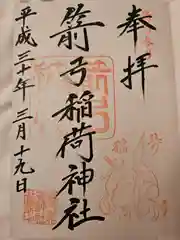 奉拝
箭弓稲荷神社
平成三十年三月十九日